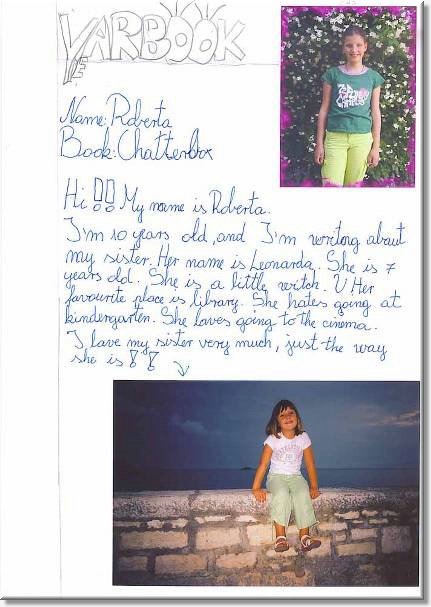 YEARBOOK
Name: Roberta
Book: Chatterbox
Hi!! My name is Roberta.
I'm 10 years old, and I'm writing about
my sister. Her name is Leonarda. She is 7
years old. She is a little witch. Her
favourite place is library. She hates going at
kindergarten. She loves going to the cinema.
I love my sister very much, just the way
she is!!